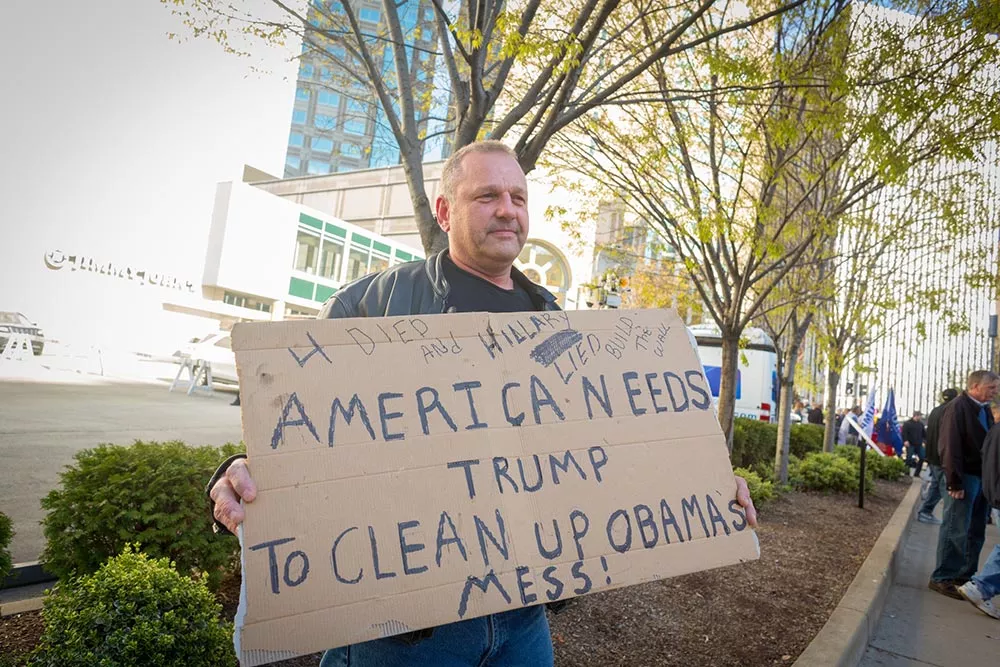 4 DIED AND HILLARY LIED BUILD THE WALL
AMERICA NEEDS
TRUMP
TO CLEAN UP OBAMA'S
MESS!